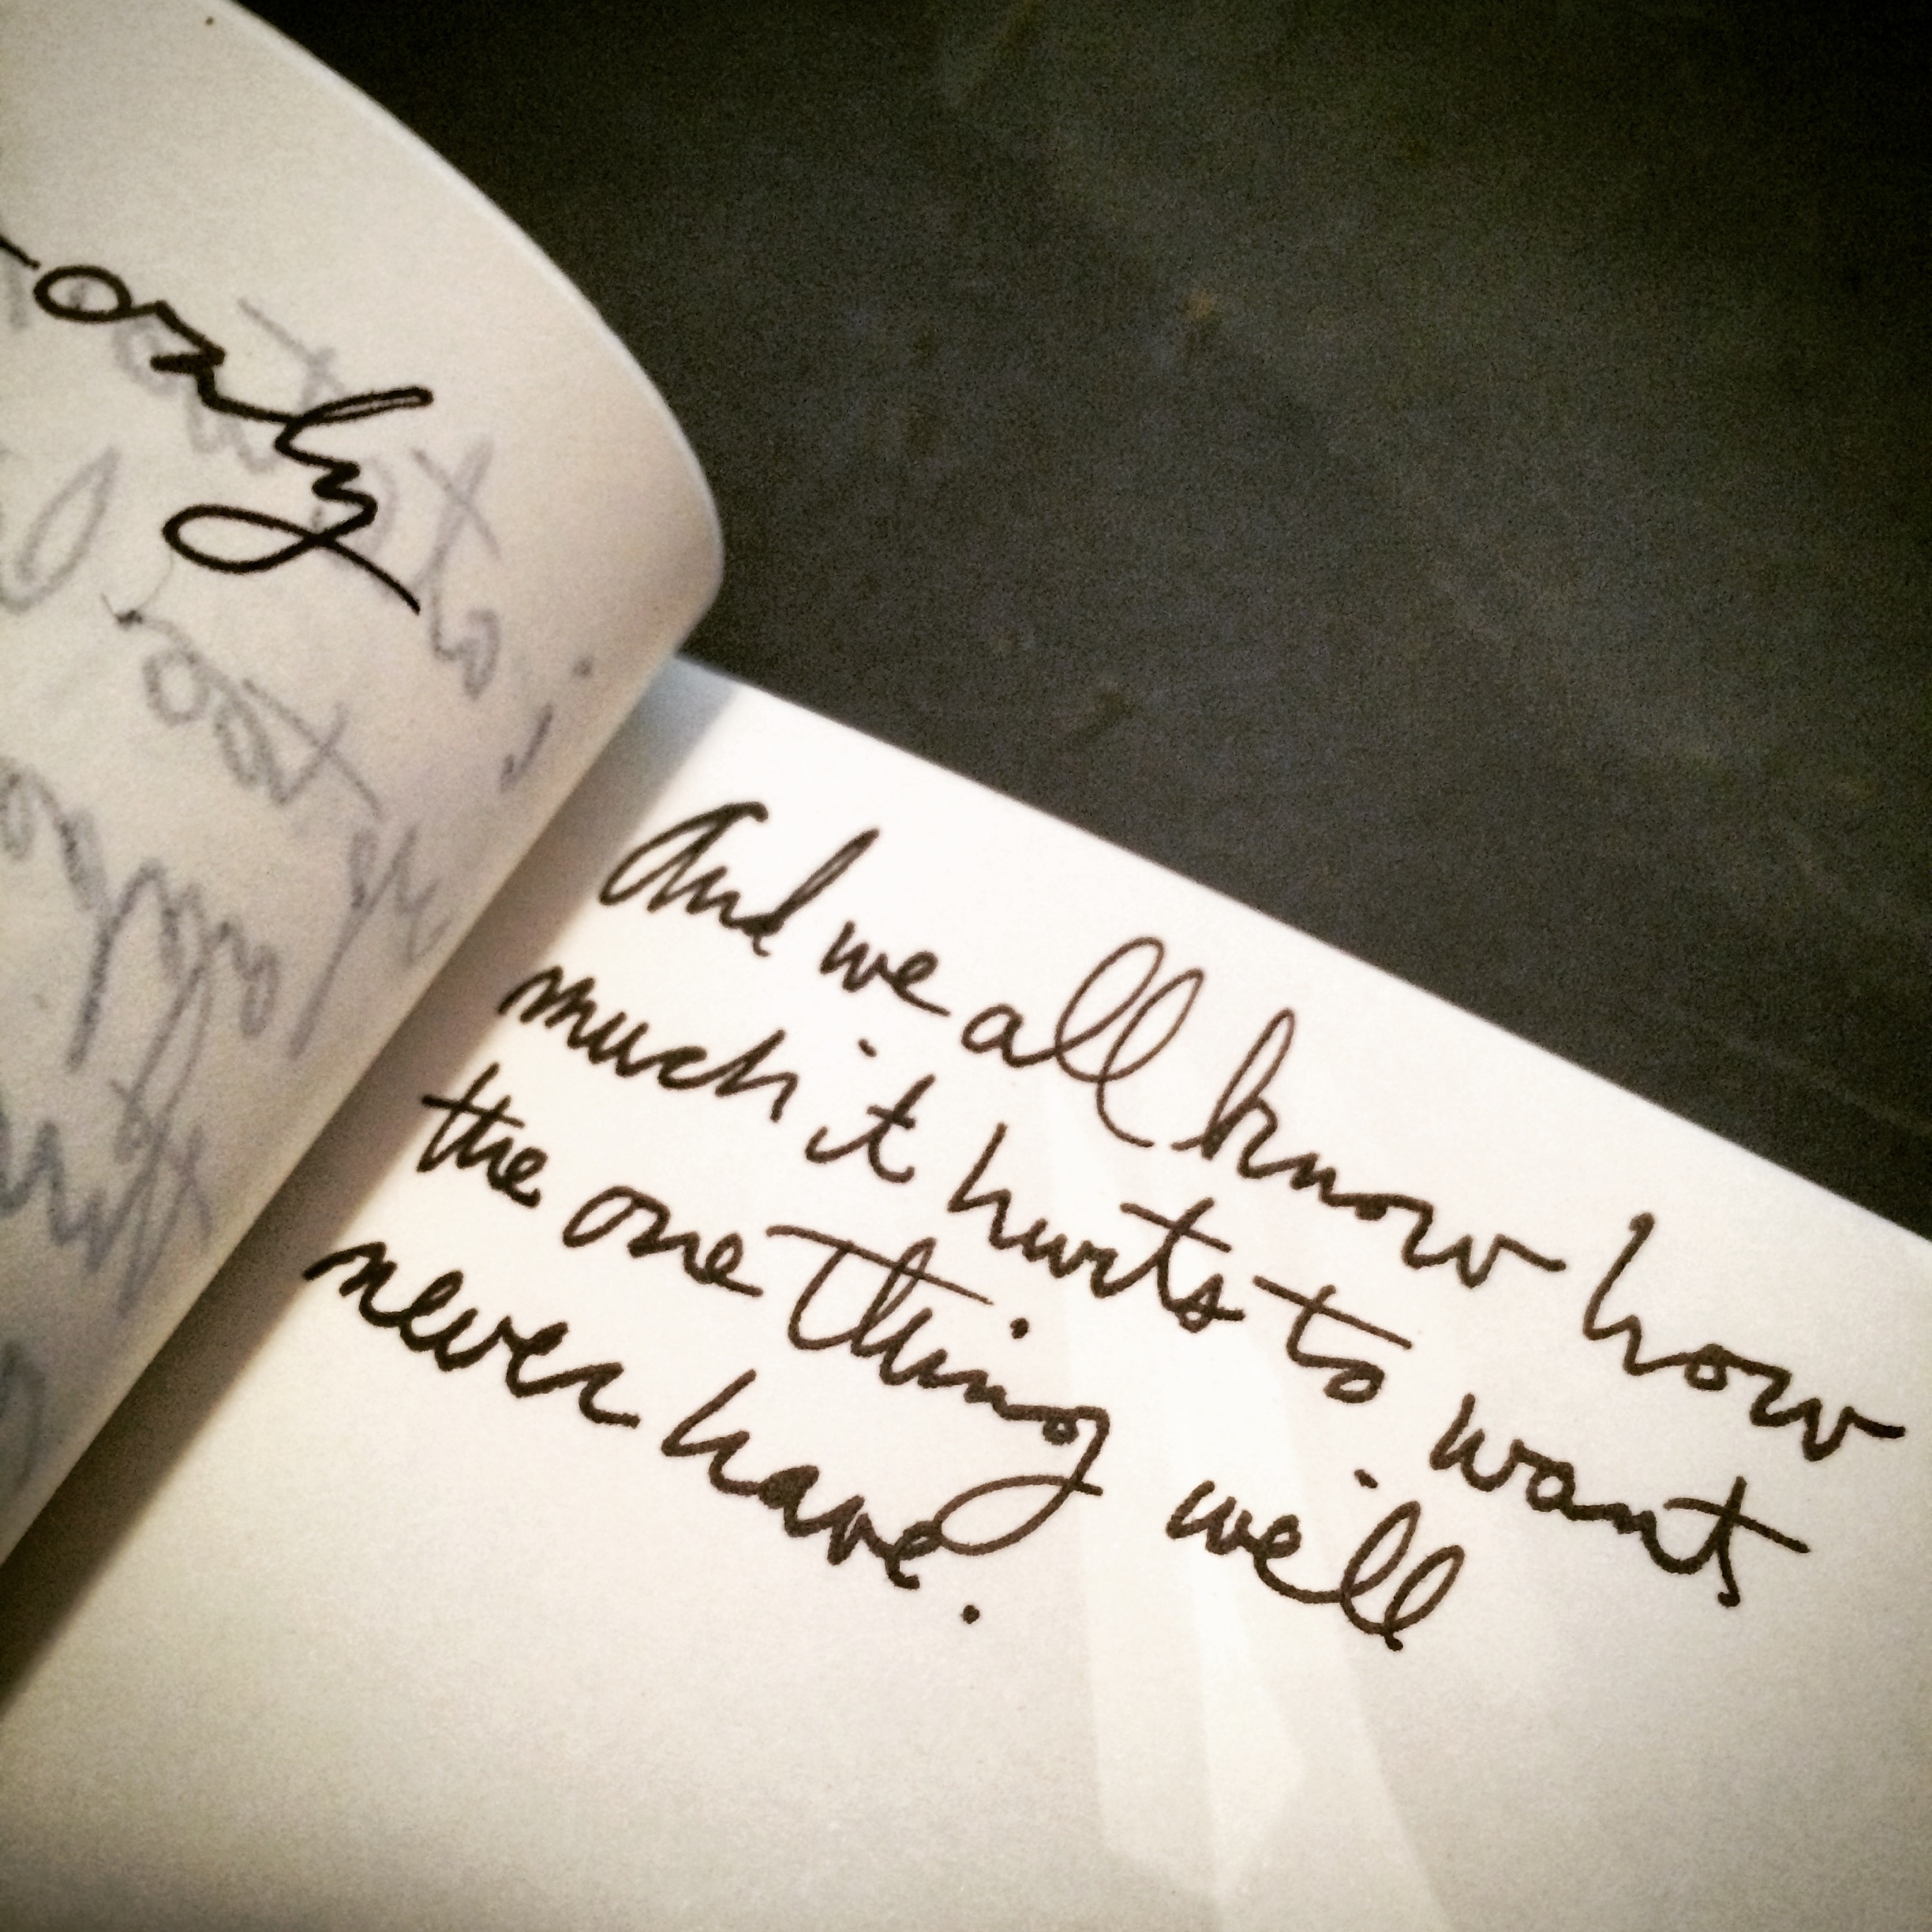 only
And we all know how
much it hurts to want
the one thing we'll
never have.